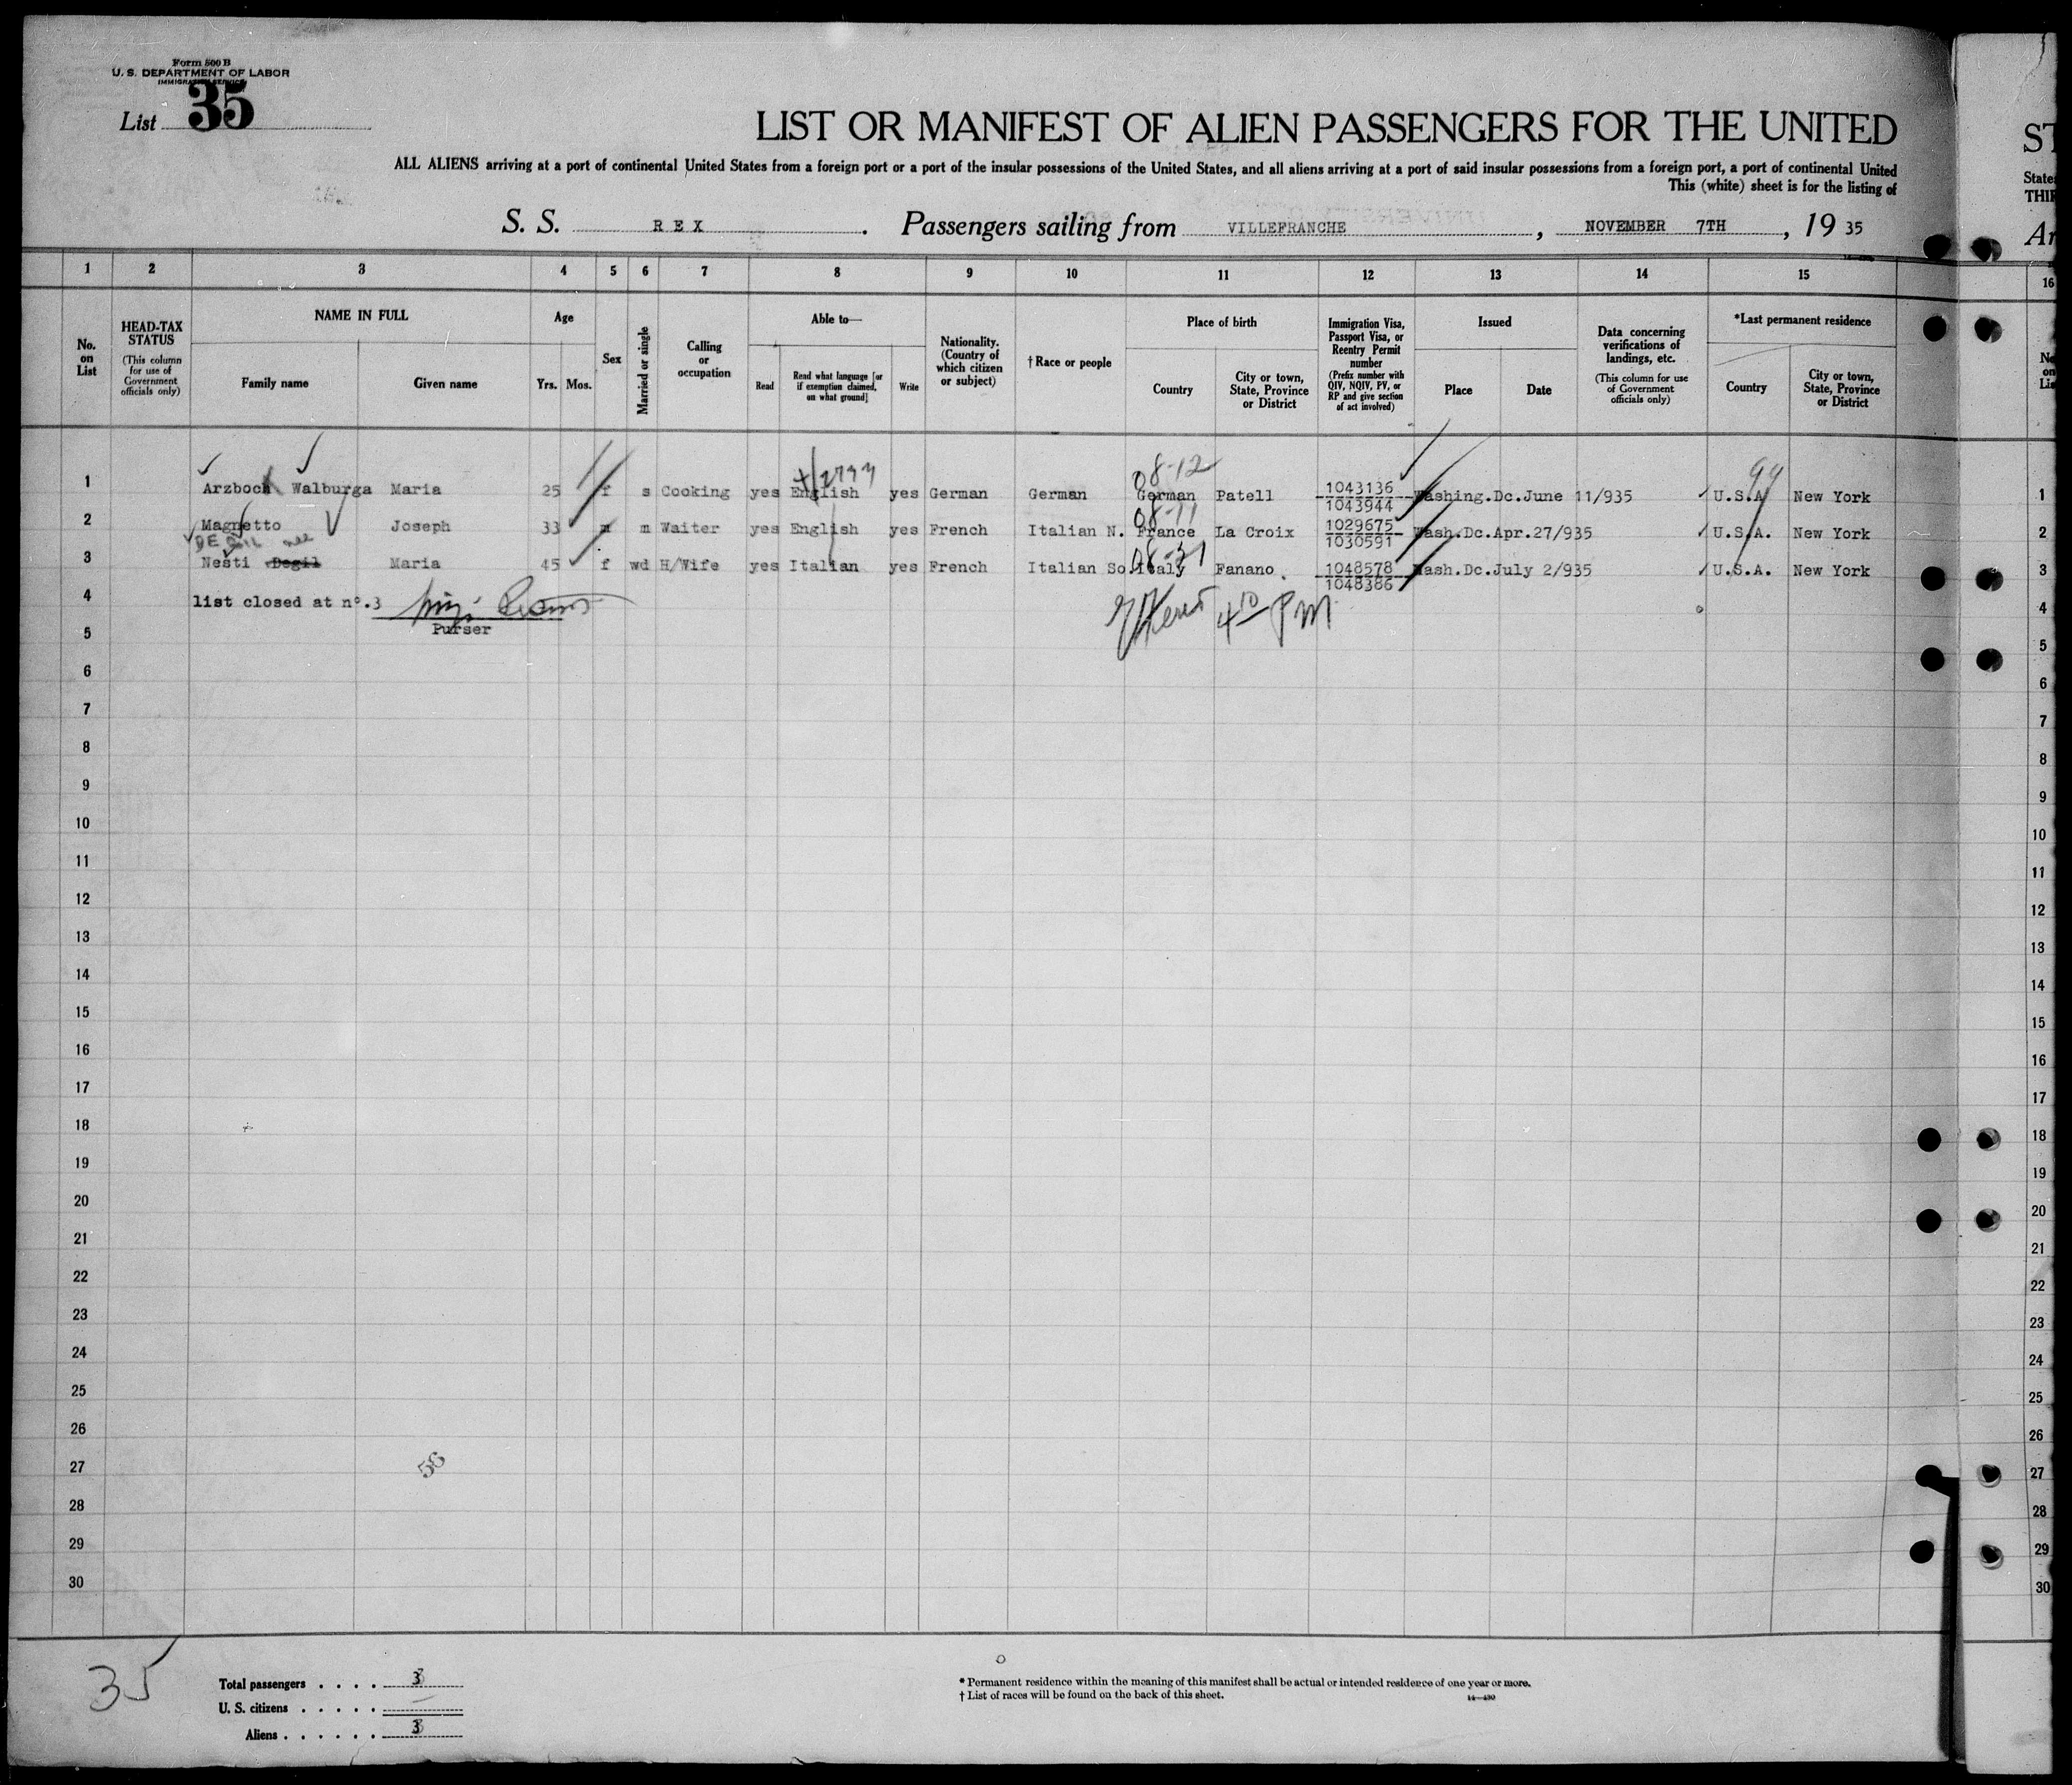 Form 500 B
U. S. DEPARTMENT OF LABOR
IMMIGRATION SERVICE
List 35
LIST OR MANIFEST OF ALIEN PASSENGERS FOR THE UNITED
ALL ALIENS arriving at a port of continental United States from a foreign port or a port of the insular possessions of the United States, and all aliens arriving at a port of said insular possessions from a foreign port, a port of continental United
This (white) sheet is for the listing of
S. S. REX . Passengers sailing from VILLEFRANCHE , NOVEMBER 7TH , 19 35
1 2 3 4 5 6 7 8 9 10 11 12 13 14 15 16
No. on List
HEAD-TAX STATUS
(This column for use of Government officials only)
NAME IN FULL
Family name
Given name
Age
Yrs. Mos.
Sex
Married or single
Calling or occupation
Able to—
Read
Read what language [or if exemption claimed, on what ground]
Write
Nationality. (Country of which citizen or subject)
† Race or people
Place of birth
Country
City or town, State, Province or District
Immigration Visa, Passport Visa, or Reentry Permit number
(Prefix number with QIV, NQIV, PV, or RP and give section of act involved)
Issued
Place
Date
Data concerning verifications of landings, etc.
(This column for use of Government officials only)
*Last permanent residence
Country
City or town, State, Province or District
08-12 99
1 Arzboch Walburga Maria 25 f s Cooking yes English yes German German German Patell 1043136 1043944 Washing.Dc.June 11/935 U.S.A New York 1
08-11
2 Magnetto Joseph 33 m m Waiter yes English yes French Italian N. France La Croix 1029675 1030591 Wash.Dc.Apr.27/935 U.S.A. New York 2
08-31
3 Nesti Degil Maria 45 f wd H/Wife yes Italian yes French Italian So. Italy Fanano 1048578 1048386 Wash.Dc.July 2/935 U.S.A. New York 3
4 list closed at nº.3 4
Purser
4 10 PM
5 5
6 6
7 7
8 8
9 9
10 10
11 11
12 12
13 13
14 14
15 15
16 16
17 17
18 18
19 19
20 20
21 21
22 22
23 23
24 24
25 25
26 26
27 27
28 28
29 29
30 30
35
Total passengers . . . . 3
U. S. citizens . . . . .
Aliens . . . . . . 3
* Permanent residence within the meaning of this manifest shall be actual or intended residence of one year or more.
† List of races will be found on the back of this sheet.
14—430